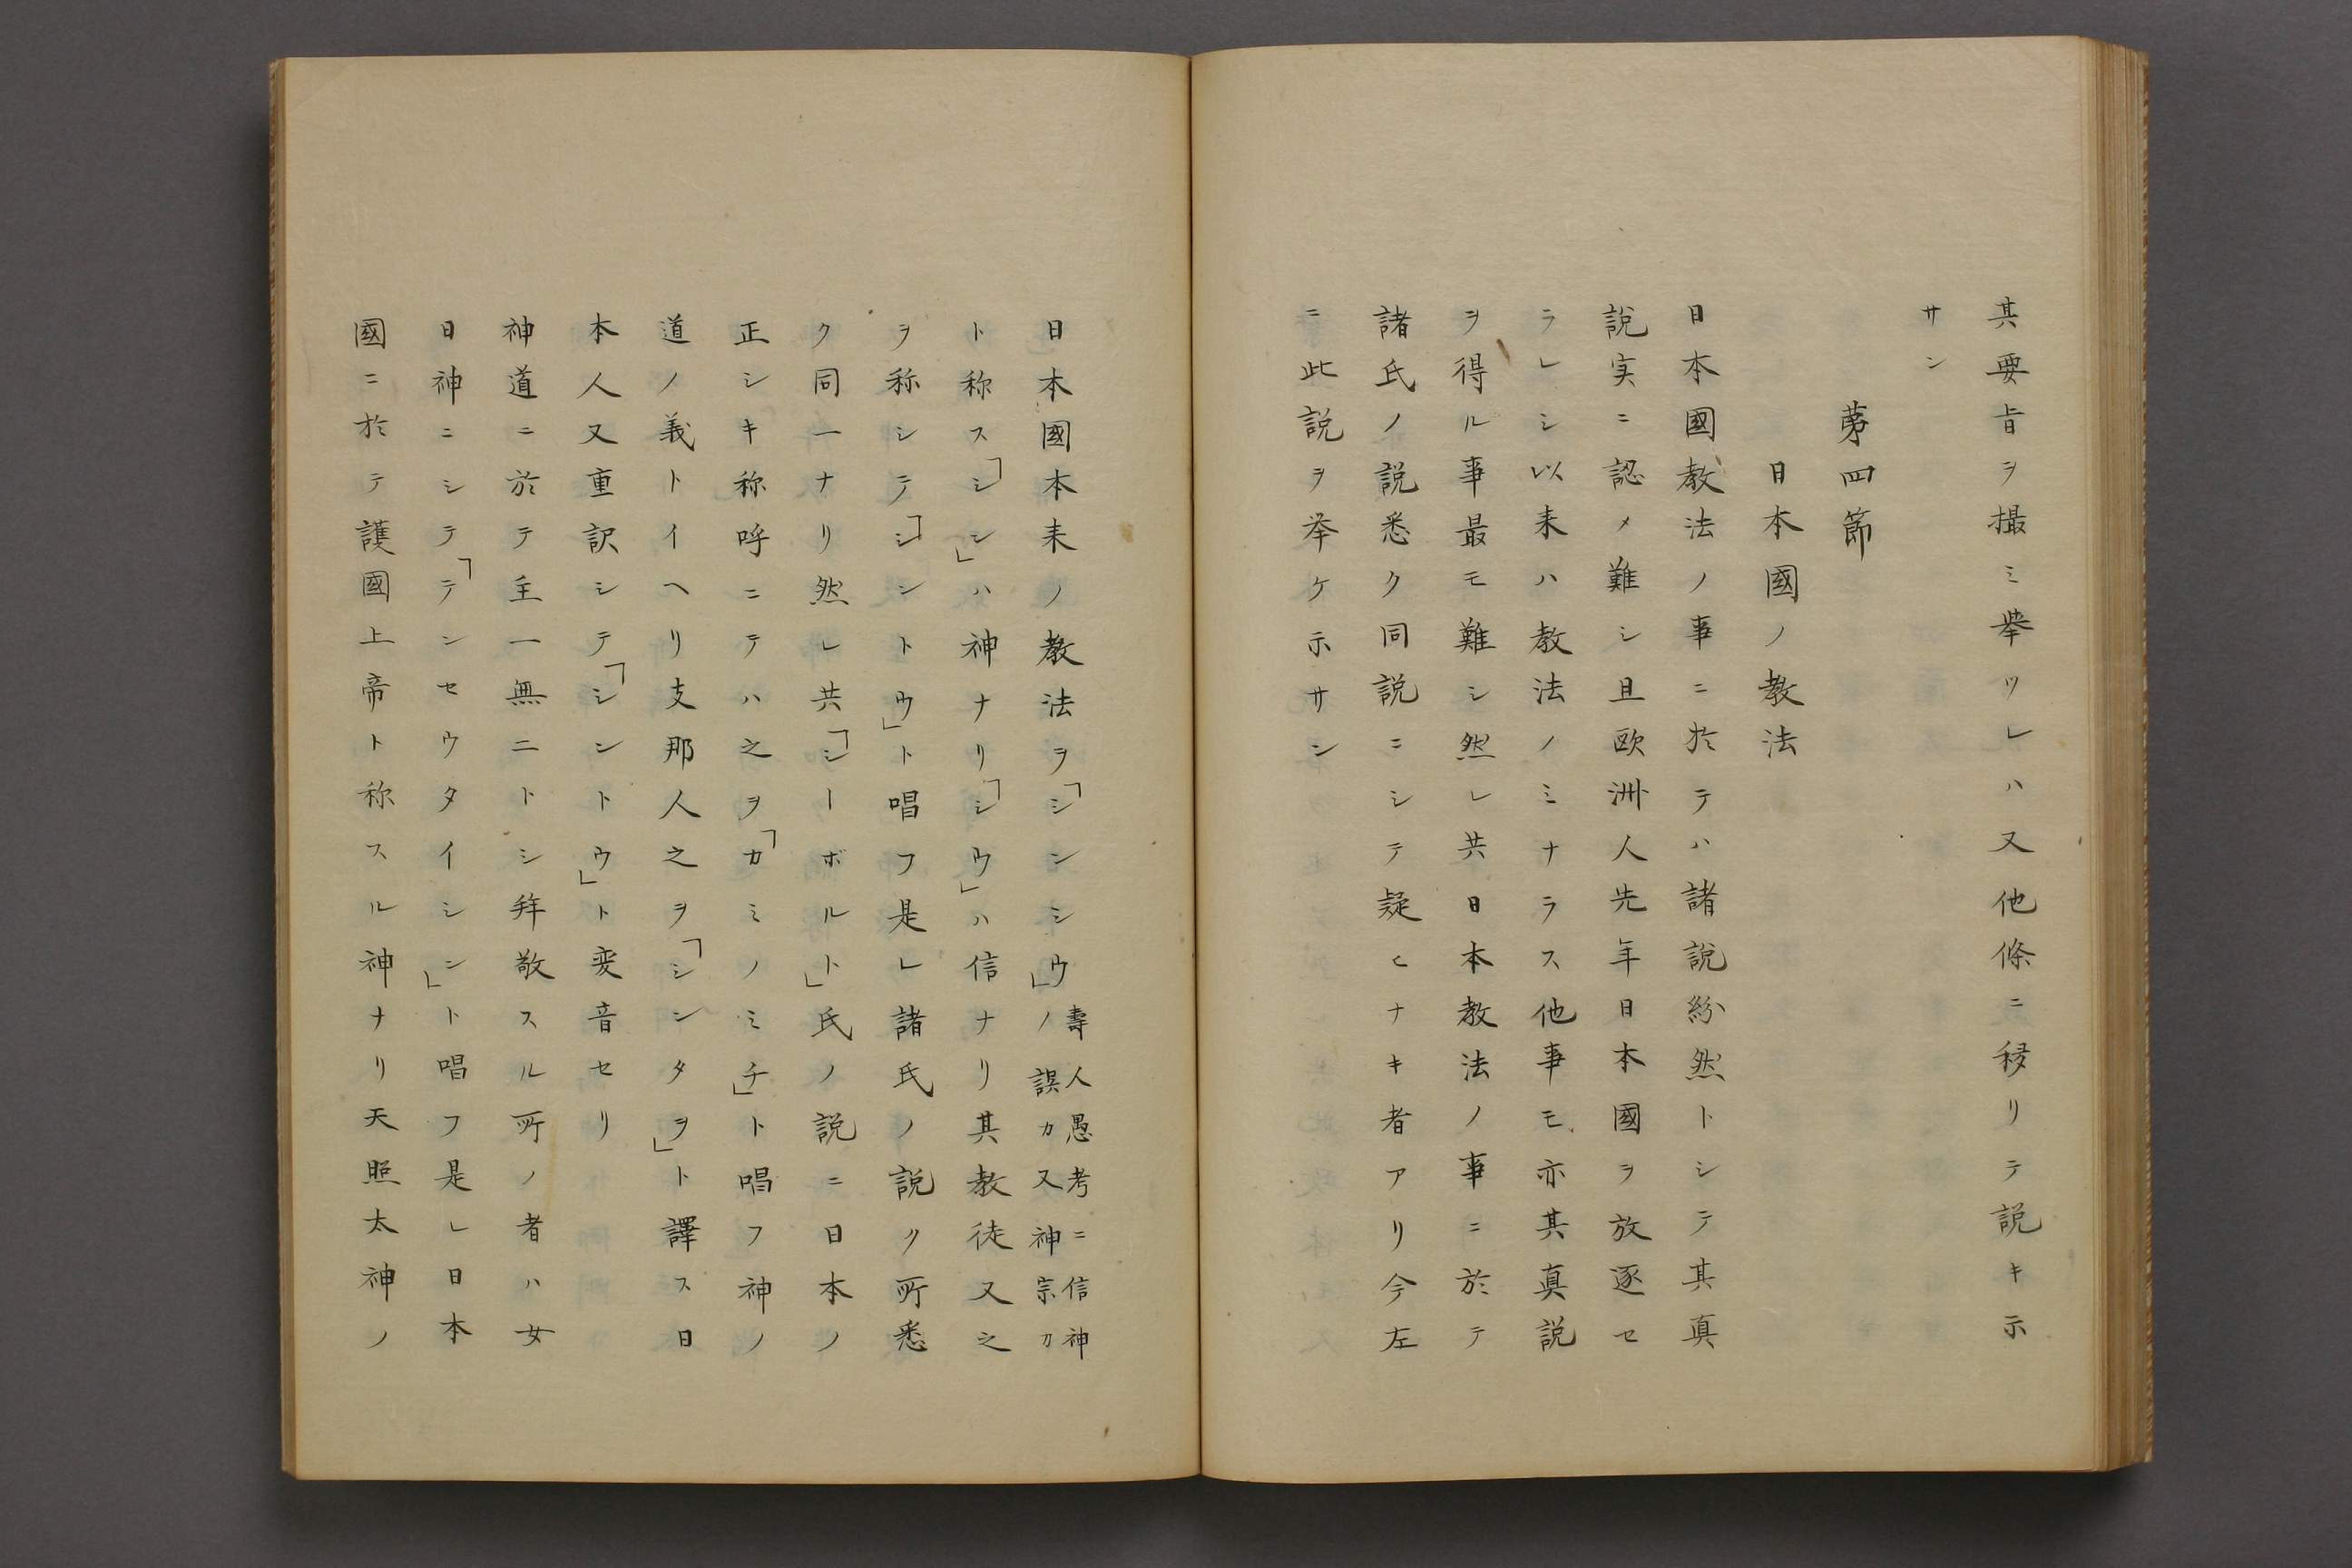 其要旨ヲ撮ミ挙ツレハ又他條ニ移リテ説キ示
サン
第四節
日本國ノ教法
日本國教法ノ事ニ於テハ諸説紛然トシテ其真
説実ニ認メ難シ且欧洲人先年日本國ヲ放逐セ
ラレシ以来ハ教法ノミナラス他事モ亦其真説
ヲ得ル事最モ難シ然レ共日本教法ノ事ニ於テ
諸氏ノ説悉ク同説ニシテ疑ヒナキ者アリ今左
ニ此説ヲ挙ケ示サン
日本國本来ノ教法ヲ「シンシウ」壽人愚考ニ信神ノ誤カ又神宗カ
ト称ス「シン」ハ神ナリ「シウ」ハ信ナリ其教徒又之
ヲ称シテ「シントウ」ト唱フ是レ諸氏ノ説ク所悉
ク同一ナリ然レ共「シーボルト」氏ノ説ニ日本ノ
正シキ称呼ニテハ之ヲ「カミノミチ」ト唱フ神ノ
道ノ義トイヘリ支那人之ヲ「シンタヲ」ト譯ス日
本人又重訳シテ「シントウ」ト変音セリ
神道ニ於テ主一無二トシ拜敬スル所ノ者ハ女
日神ニシテ「テンセウタイシン」ト唱フ是レ日本
國ニ於テ護國上帝ト称スル神ナリ天照太神ノ